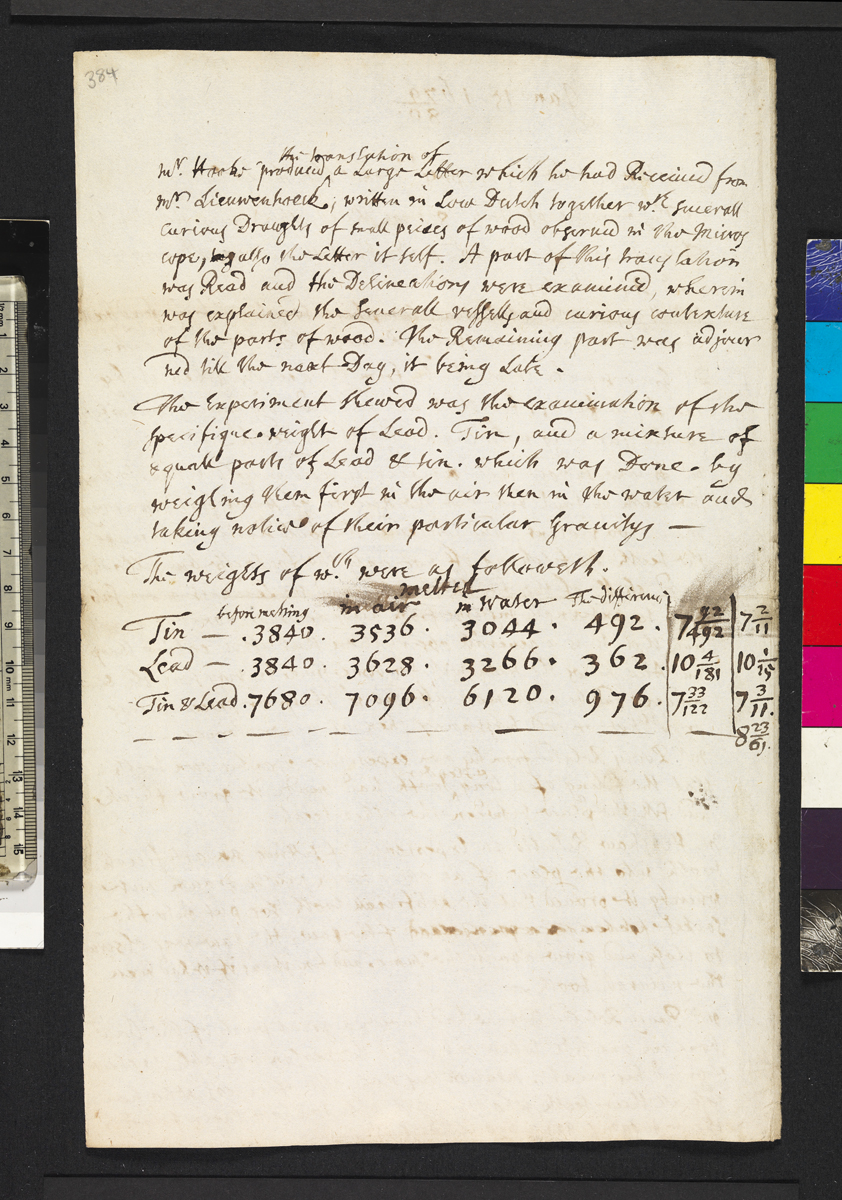 384
the translation of
mr. Hooke produced a Large Letter which he had Received from
mr. Lieuwenhoeck, written in Low Dutch together wth. severall
curious Draughts of small peices of wood observd in the Micros
cope, as also the Letter it self. A part of this translation
was Read and the Delineations were examined, wherein
was explained the severall vessells and curious contexture
of the parts of wood. The Remaining part was adjour
ned till the next Day, it being Late.
The Experiment shewed was the examination of the
specifique weight of Lead. Tin, and a mixture of
equall parts of Lead & tin. which was Done. by
weighing them first in the air then in the water and
taking notice of their particular Gravitys —
The weights of wch. were as followeth.
melted
before melting in air in Water The differenc
Tin — . 3840. 3536. 3044. 492. 7 92/492 7 2/11
Lead — . 3840. 3628. 3266. 362. 10 4/181 10 1/15
Tin & Lead. 7680. 7096. 6120. 976. 7 33/122 7 3/11.
8 23/61.